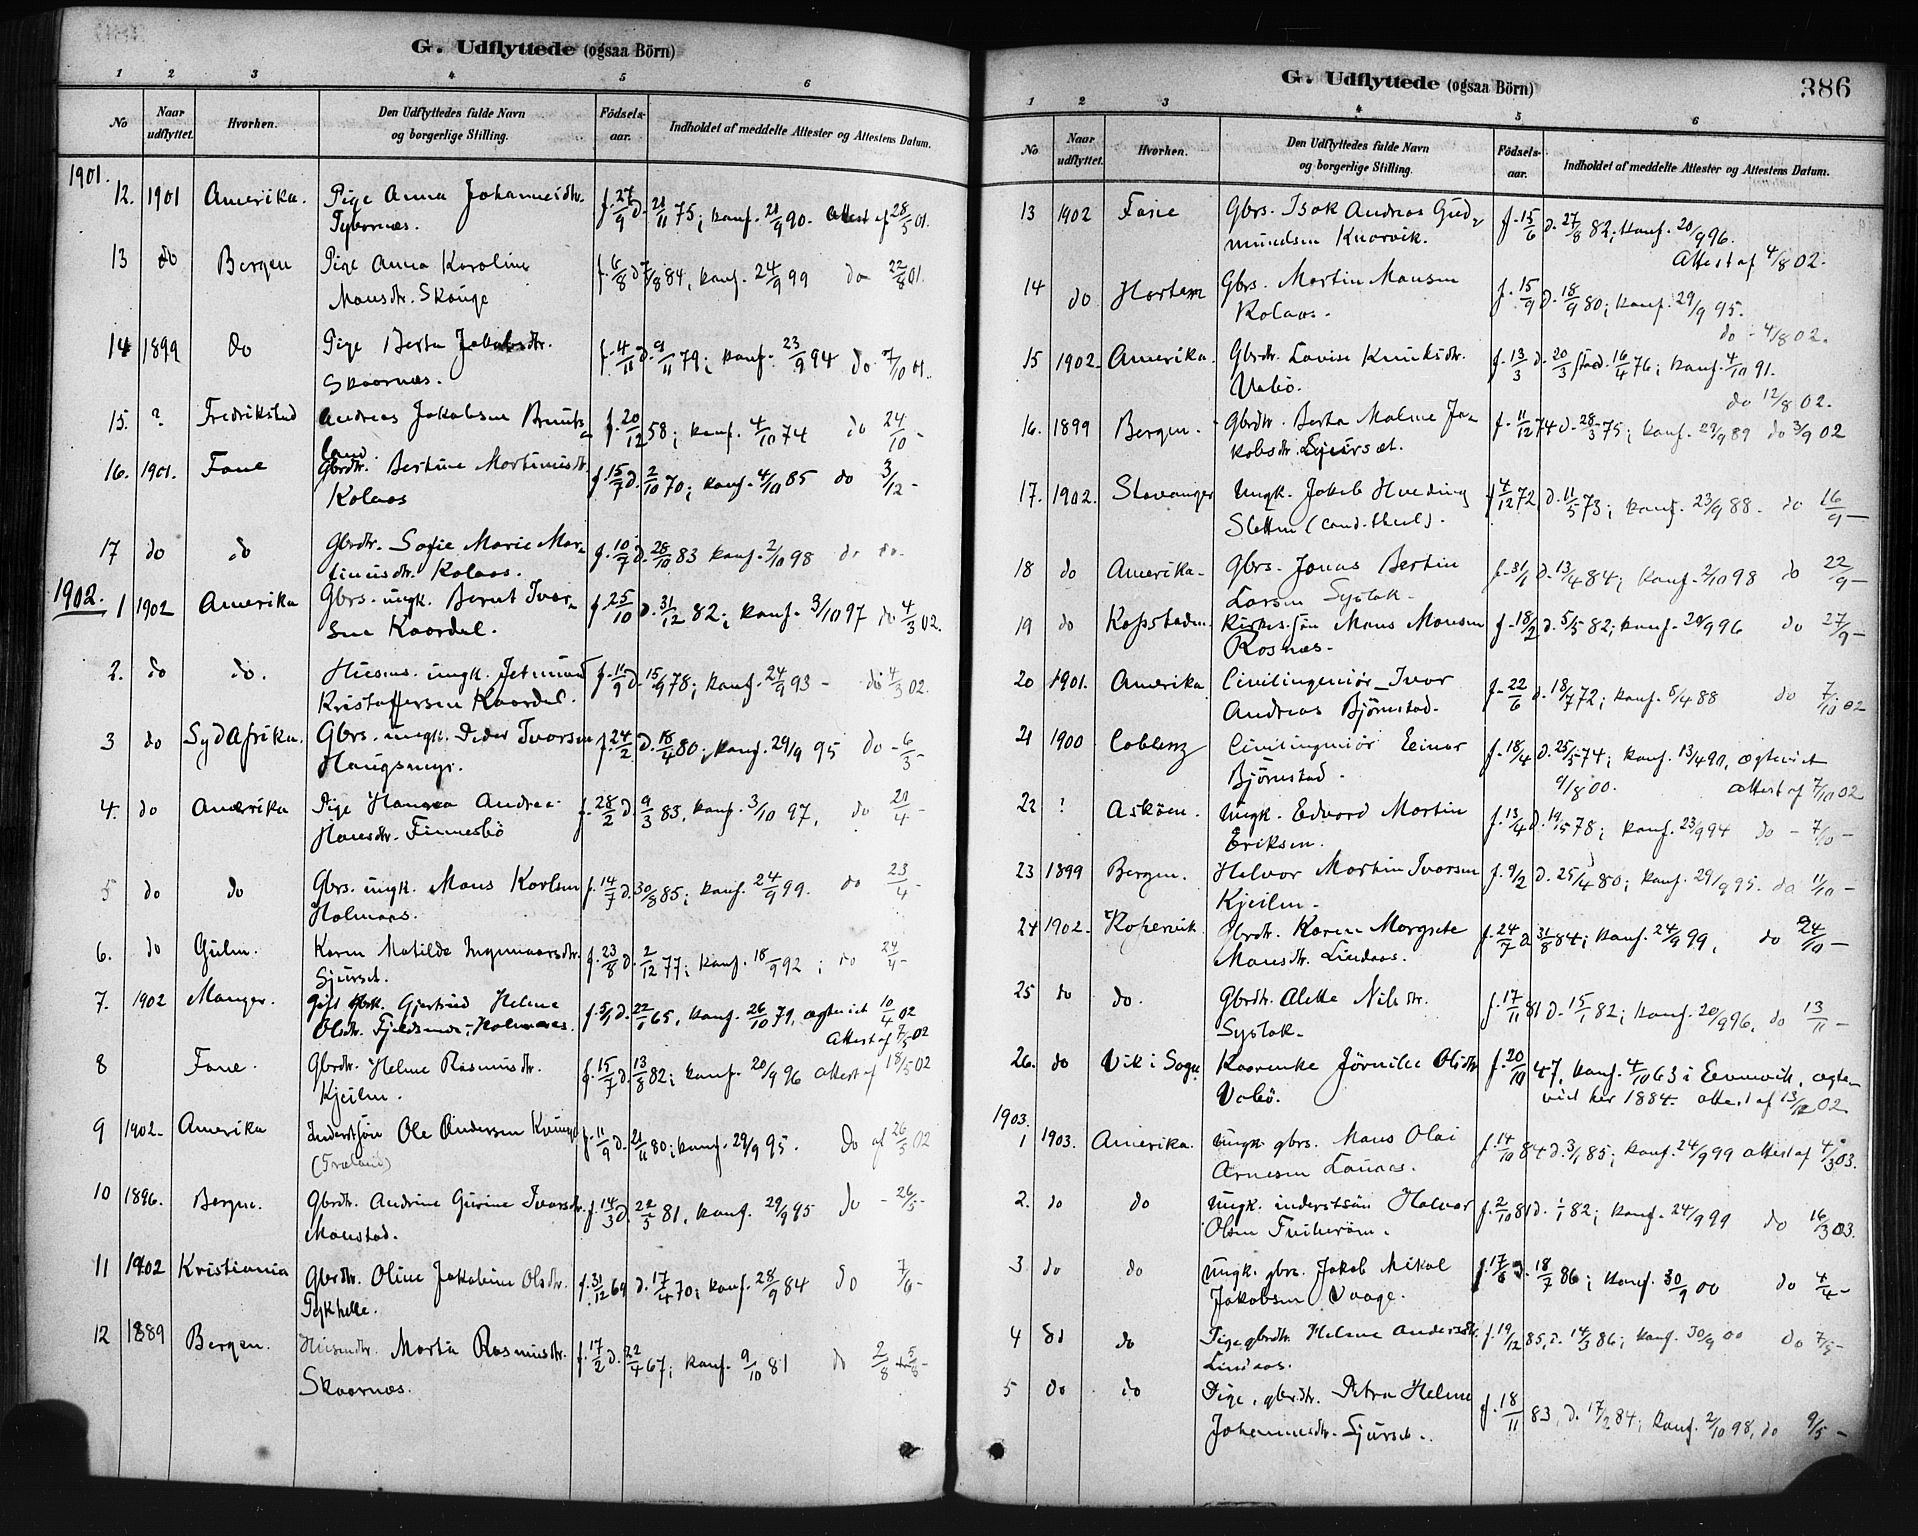 G. Udflyttede (ogsaa Börn)
1 2 3 4 5 6
No Naar udflyttet. Hvorhen. Den Udflyttedes fulde Navn og borgerlige Stilling. Födsels-aar. Indholdet af meddelte Attester og Attestens Datum.
1901.
12. 1901 Amerika. Pige Anna Johannesdtr. f. 27/9 d. 21/11 75; konf. 21/9 90. Attest af 28/5 01.
13 do Bergen Pige Anna Karoline f. 6/8 84, konf. 24/9 99 do 22/8 01.
Monsdr. Skauge
14 1899 do Pige Berta Jakobsdtr. f. 4/11 d. 9/11 79; konf. 23/9 94 do 7/10 01.
Skaornæs.
15. ? Fredrikstad Andreas Jakobsen f. 20/12 58; konf. 4/10 74 do 24/10 -
land.
16. 1901. Fane Gbrdtr. Bertine Martinusdtr. f. 15/7 d. 2/10 70; konf. 4/10 85 do 3/12 -
Kolaas
17 do do Gbrdtr. Sofie Marie Mar- f. 10/7 d. 28/10 83 konf. 2/10 98 do do.
tinusdtr. Kolaas.
1902. 1 1902 Amerika Gbrs. ungk. Bernt Ivar- f. 25/10 d. 31/12 82; konf. 3/10 97 do 4/3 02.
sen Kaardal.
2. do do. Husms. ungk. Jetmund f. 11/9 d. 15/9 78; konf. 24/9 93 - do 4/3 02.
Kristoffersen Kaardal.
3 do Syd Afrika. Gbrs. ungk. Peder Ivarsen f. 24/2 d. 18/4 80; konf. 29/9 95 do - 6/3 -
Haugsmyr.
4. do Amerika Pige Hanna Andrea f. 28/2 d. 9/3 83, konf. 3/10 97, do 21/4 -
Hansdtr. Finnesbö
5 do do Gbrs. ungk. Mons Karlsen f. 14/7 d. 30/8 85; konf. 24/9 99. do 23/4 -
Holmaas.
6. do Gulen. Karen Matilde Ingemaarsdtr. f. 23/8 d. 2/12 77; konf. 18/9 92; do 24/4 -
Sjurset.
7. 1902 Manger. Gift Gjertrud Helene 22/1 65, konf. 26/10 79, ægteviet 10/4 02
Olsdtr. Holmaas. Attest af 7/5 02
8 Fane. Gbrdtr. Helene Rasmusdtr. f. 15/7 d. 13/8 82; konf. 20/9 96 attest af 18/5 02
Kjeilen.
9 1902. Amerika Inderstsön Ole Andersen f. 11/9 d. 21/11 80; konf. 29/9 95. Do af 26/5 02
10 1896. Bergen. Gbrdtr. Andrine Gurine Ivarsdtr. f. 14/3 d. 22/5 81, konf. 29/9 95 do - 26/5 -
Monstad.
11 1902 Kristiania Gbrdtr. Oline Jakobine Olsdtr. f. 31/12 69 d. 17/4 70; konf. 28/9 84 do 7/6 -
12 1889 Bergen. Husmdtr. Marta Rasmusdtr. f. 17/2 d. 22/4 67; konf. 9/10 81 do 2/8
Skaornæs.
G. Udflyttede (ogsaa Börn) 386
1 2 3 4 5 6
No Naar udflyttet. Hvorhen. Den Udflyttedes fulde Navn og borgerlige Stilling. Födsels-aar. Indholdet af meddelte Attester og Attestens Datum.
13 1902 Fane Gbrs. Isak Andreas Gud- f. 15/6 d. 27/8 82; konf. 20/9 96.
mundsen Knarvik. Attest af 4/8 02.
14 do Gbrs. Martin Monsen f. 15/9 d. 18/9 80; konf. 29/9 95.
Kolaas. do - 4/8 02.
15 1902 Amerika. Gbrdtr. Lovise Knutsdtr. f. 13/3 d. 20/3 stad. 16/4 76; konf. 4/10 91.
Vabö. do 12/8 02.
16. 1899 Bergen. Gbrdtr. Berta Malene Ja- f. 11/12 74 d. 28/3 75; konf. 29/9 89 do 3/9 02
kobsdtr. Sjurset.
17. 1902. Stavanger Ungk. Jakob Hveding f. 4/12 72 d. 11/5 73; konf. 23/9 88. do 16/9 -
Sletten (cand. theol).
18 do Amerika. Gbrs. Jonas Bertin f. 31/1 d. 13/4 84; konf. 2/10 98 do 22/9 -
Larsen Systak.
19 do Kapstaden. Mons Monsen f. 18/2 d. 5/5 82; konf. 20/9 96 do 27/9 -
Rosnæs.
20 1901. Amerika Civilingeniör Ivar f. 22/6 d. 18/7 72; konf. 5/4 88 do 7/10 02
Andreas Björnstad.
21 1900 Coblenz Civilingeniör Einar f. 18/4 d. 25/5 74; konf. 13/4 90, ægteviet
Björnstad. 9/8 00. attest af 7/10 02
22 ? Asköen. Ungk. Edvard Martin f. 13/4 d. 19/5 78; konf. 23/9 94 do - 7/10 -
Eriksen.
23 1899 Bergen. Halvor Martin Ivarsen f. 9/2 d. 25/4 80; konf. 29/9 95. do 11/10 -
Kjeilen.
24 1902. Kopervik Gbrdtr. Karen Margrete f. 24/7 d. 31/8 84; konf. 24/9 99, do 24/10 -
Monsdtr. Lindaas.
25 do do. Gbrdtr. Alette Nilsdtr. f. 17/11 81 d. 15/1 82; konf. 20/9 96, do 13/11 -
Systak.
26. do Vik i Sogn Olsdtr f. 20/10 47, konf. 4/10 63 i Evenvik, ægte-
Vabö. viet her 1884. attest af 13/12 02
1903.
1 1903. Amerika. Ungk. gbrs. Mons Olai f. 14/10 84 d. 3/1 85; konf. 24/9 99 attest af 4/3 03.
Arnesen Lauaas.
2. do do Ungk. inderstsön Halvor f. 2/10 81 d. 1/1 82; konf. 24/9 99 do 16/3 03.
Olsen
3 do do Ungk. gbrs. Jakob Mikal f. 17/6 d. 18/7 86; konf. 30/9 00 do 4/4 -
Jakobsen Vaage.
4 do do Pige gbrdtr. Helene Andersdtr. f. 19/12 85, d. 14/3 86; konf. 30/9 00 do 7/5 -
Lindaas.
5 do do Pige, gbrdtr. Petra Helene f. 18/11 83, d. 17/2 84; konf. 2/10 98, do 9/5 -
Johannesdtr. Sjurset.